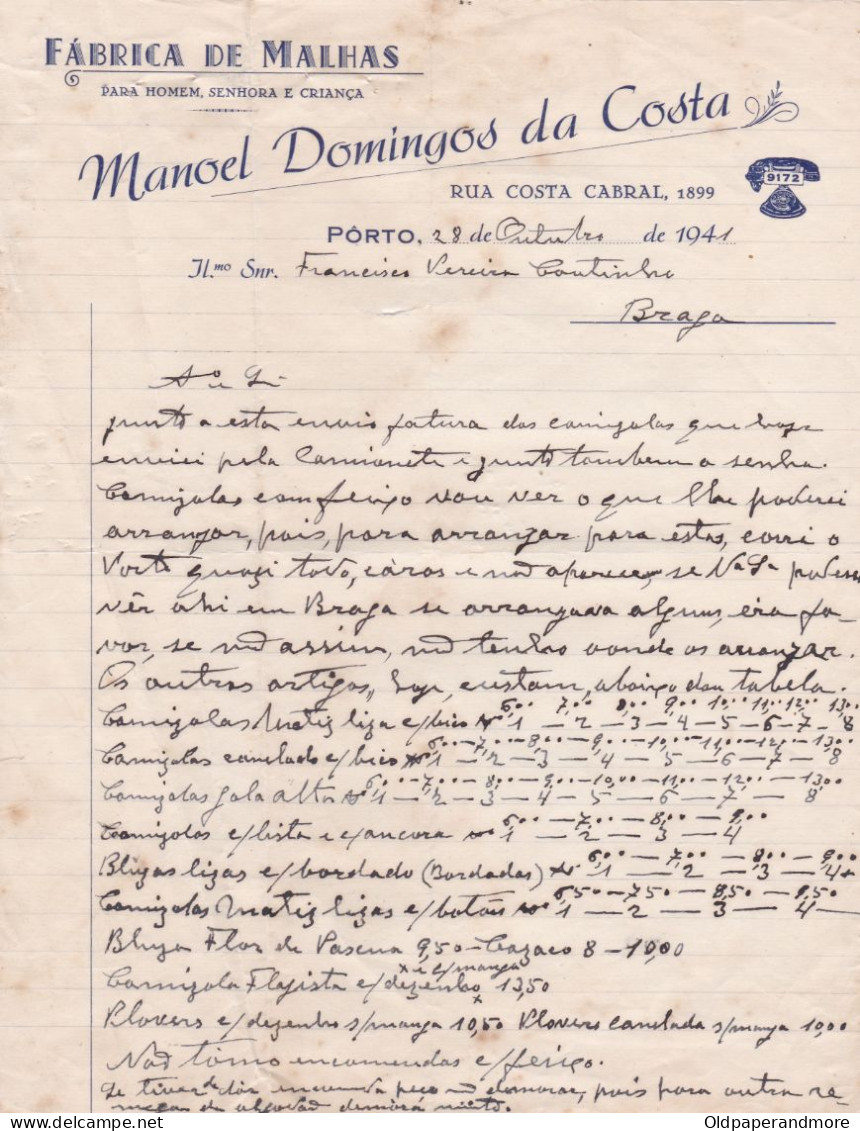 FÁBRICA DE MALHAS
PARA HOMEM, SENHORA E CRIANÇA
Manoel Domingos da Costa
RUA COSTA CABRAL, 1899
9172
PÔRTO, 28 de Outubro de 1941
Il.mo Snr. Francisco Pereira Coutinho
Braga
junto a esta envio fatura das camizolas que hoje
enviei pela Camionete e junto tambem a senha.
Camizolas com feixo vou ver o que lhe poderei
arranjar, pois, para arranjar para estas, corri o
Porto quazi todo, cáros e não aparecem, se Va Sa podesse
vêr ahi em Braga se arranjava alguns, éra fa-
vor, se não assim, não tenho aonde os arranjar.
Os outros artigos, hoje, custam, abaixo dou tabela.
6,00 7,00 8,00 9,00 10,00 11,00 12,00 13,00
Camizolas Matiz liza c/bico No 1 — 2 — 3 — 4 — 5 — 6 — 7 — 8
6,00 — 7,00 — 8,00 — 9,00 — 10,00 — 11,00 — 12,00 — 13,00
Camizolas canelado c/bico No 1 — 2 — 3 — 4 — 5 — 6 — 7 — 8
6,00 — 7,00 — 8,00 — 9,00 — 10,00 — 11,00 — 12,00 — 13,00
Camizolas gola alta No 1 — 2 — 3 — 4 — 5 — 6 — 7 — 8
6,00 — 7,00 — 8,00 — 9,00
Camizolas c/lista e c/ancora No 1 — 2 — 3 — 4
6,00 — 7,00 — 8,00 — 9,00
Bluzas lizas c/bordado (Bordadas) No 1 — 2 — 3 — 4
6,50 — 7,50 — 8,50 — 9,50
Camizolas Matiz lizas c/botão No 1 — 2 — 3 — 4
Bluza Flor de Pascua 9,50 — Cazaco 8 — 10,00
x e c/manga
Camizola c/dezenho x 13,50
Plovers c/dezenho s/manga 10,50 Plovers canelada s/manga 10,00
Não tômo encomendas c/feixo.
Se tiver de dár encomenda peço não demorar, pois para outra re-
messa de algodão demorá muito.
Oldpaperandmore